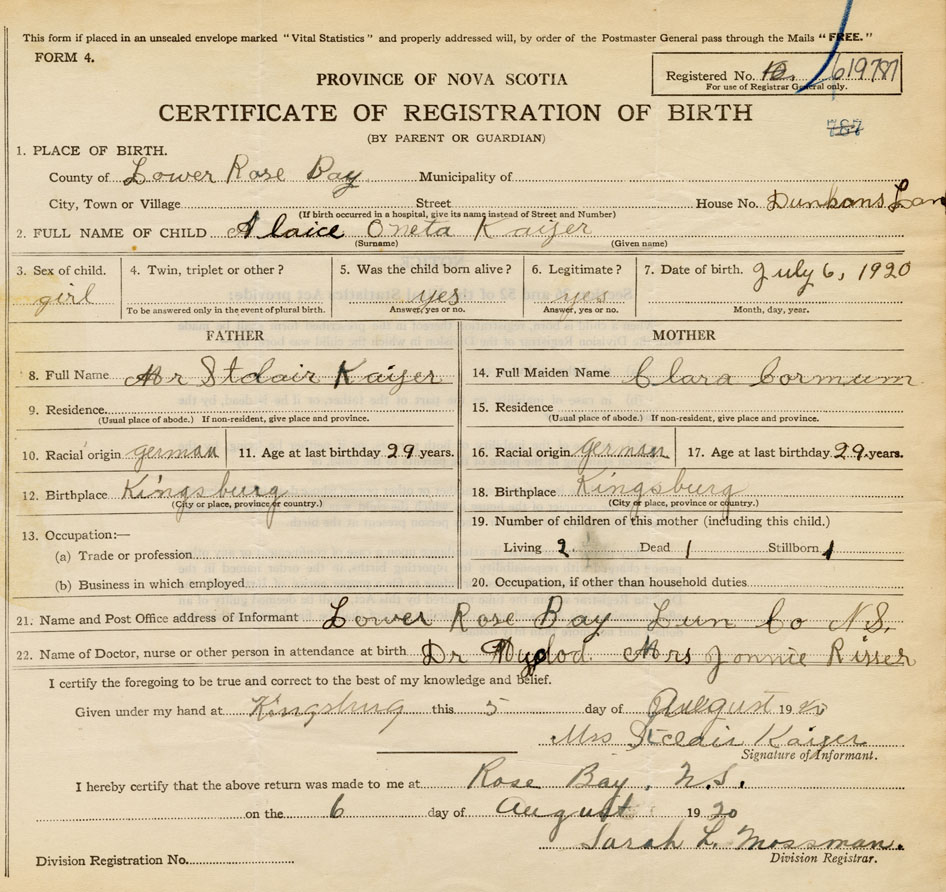 This form if placed in an unsealed envelope marked "Vital Statistics" and properly addressed will, by order of the Postmaster General pass through the Mails "FREE."
FORM 4.
PROVINCE OF NOVA SCOTIA
Registered No. 619787
For use of Registrar General only.
CERTIFICATE OF REGISTRATION OF BIRTH
787
(BY PARENT OR GUARDIAN)
1. PLACE OF BIRTH.
County of Lower Rose Bay Municipality of
City, Town or Village Street House No.
(If birth occurred in a hospital, give its name instead of Street and Number)
2. FULL NAME OF CHILD Alaice Oneta Kaizer
(Surname) (Given name)
3. Sex of child. 4. Twin, triplet or other? 5. Was the child born alive? 6. Legitimate? 7. Date of birth. July 6, 1920
girl yes yes
To be answered only in the event of plural birth. Answer, yes or no. Answer, yes or no. Month, day, year.
FATHER MOTHER
8. Full Name Mr Stclair Kaizer 14. Full Maiden Name Clara
9. Residence 15. Residence
(Usual place of abode.) If non-resident, give place and province. (Usual place of abode.) If non-resident, give place and province.
10. Racial origin german 11. Age at last birthday 29 years. 16. Racial origin german 17. Age at last birthday 29 years.
12. Birthplace Kingsburg 18. Birthplace Kingsburg
(City or place, province or country.) (City or place, province or country.)
13. Occupation:— 19. Number of children of this mother (including this child.)
(a) Trade or profession Living 2 Dead 1 Stillborn 1
(b) Business in which employed 20. Occupation, if other than household duties
21. Name and Post Office address of Informant Lower Rose Bay Lun Co N.S.
22. Name of Doctor, nurse or other person in attendance at birth Dr Mrs Jonnie Risser
I certify the foregoing to be true and correct to the best of my knowledge and belief.
Given under my hand at Kingsburg this 5 day of August 1920
Mrs Stclair Kaizer
Signature of Informant.
I hereby certify that the above return was made to me at Rose Bay, N.S.
on the 6 day of August 1920
Sarah L. Mossman.
Division Registration No. Division Registrar.